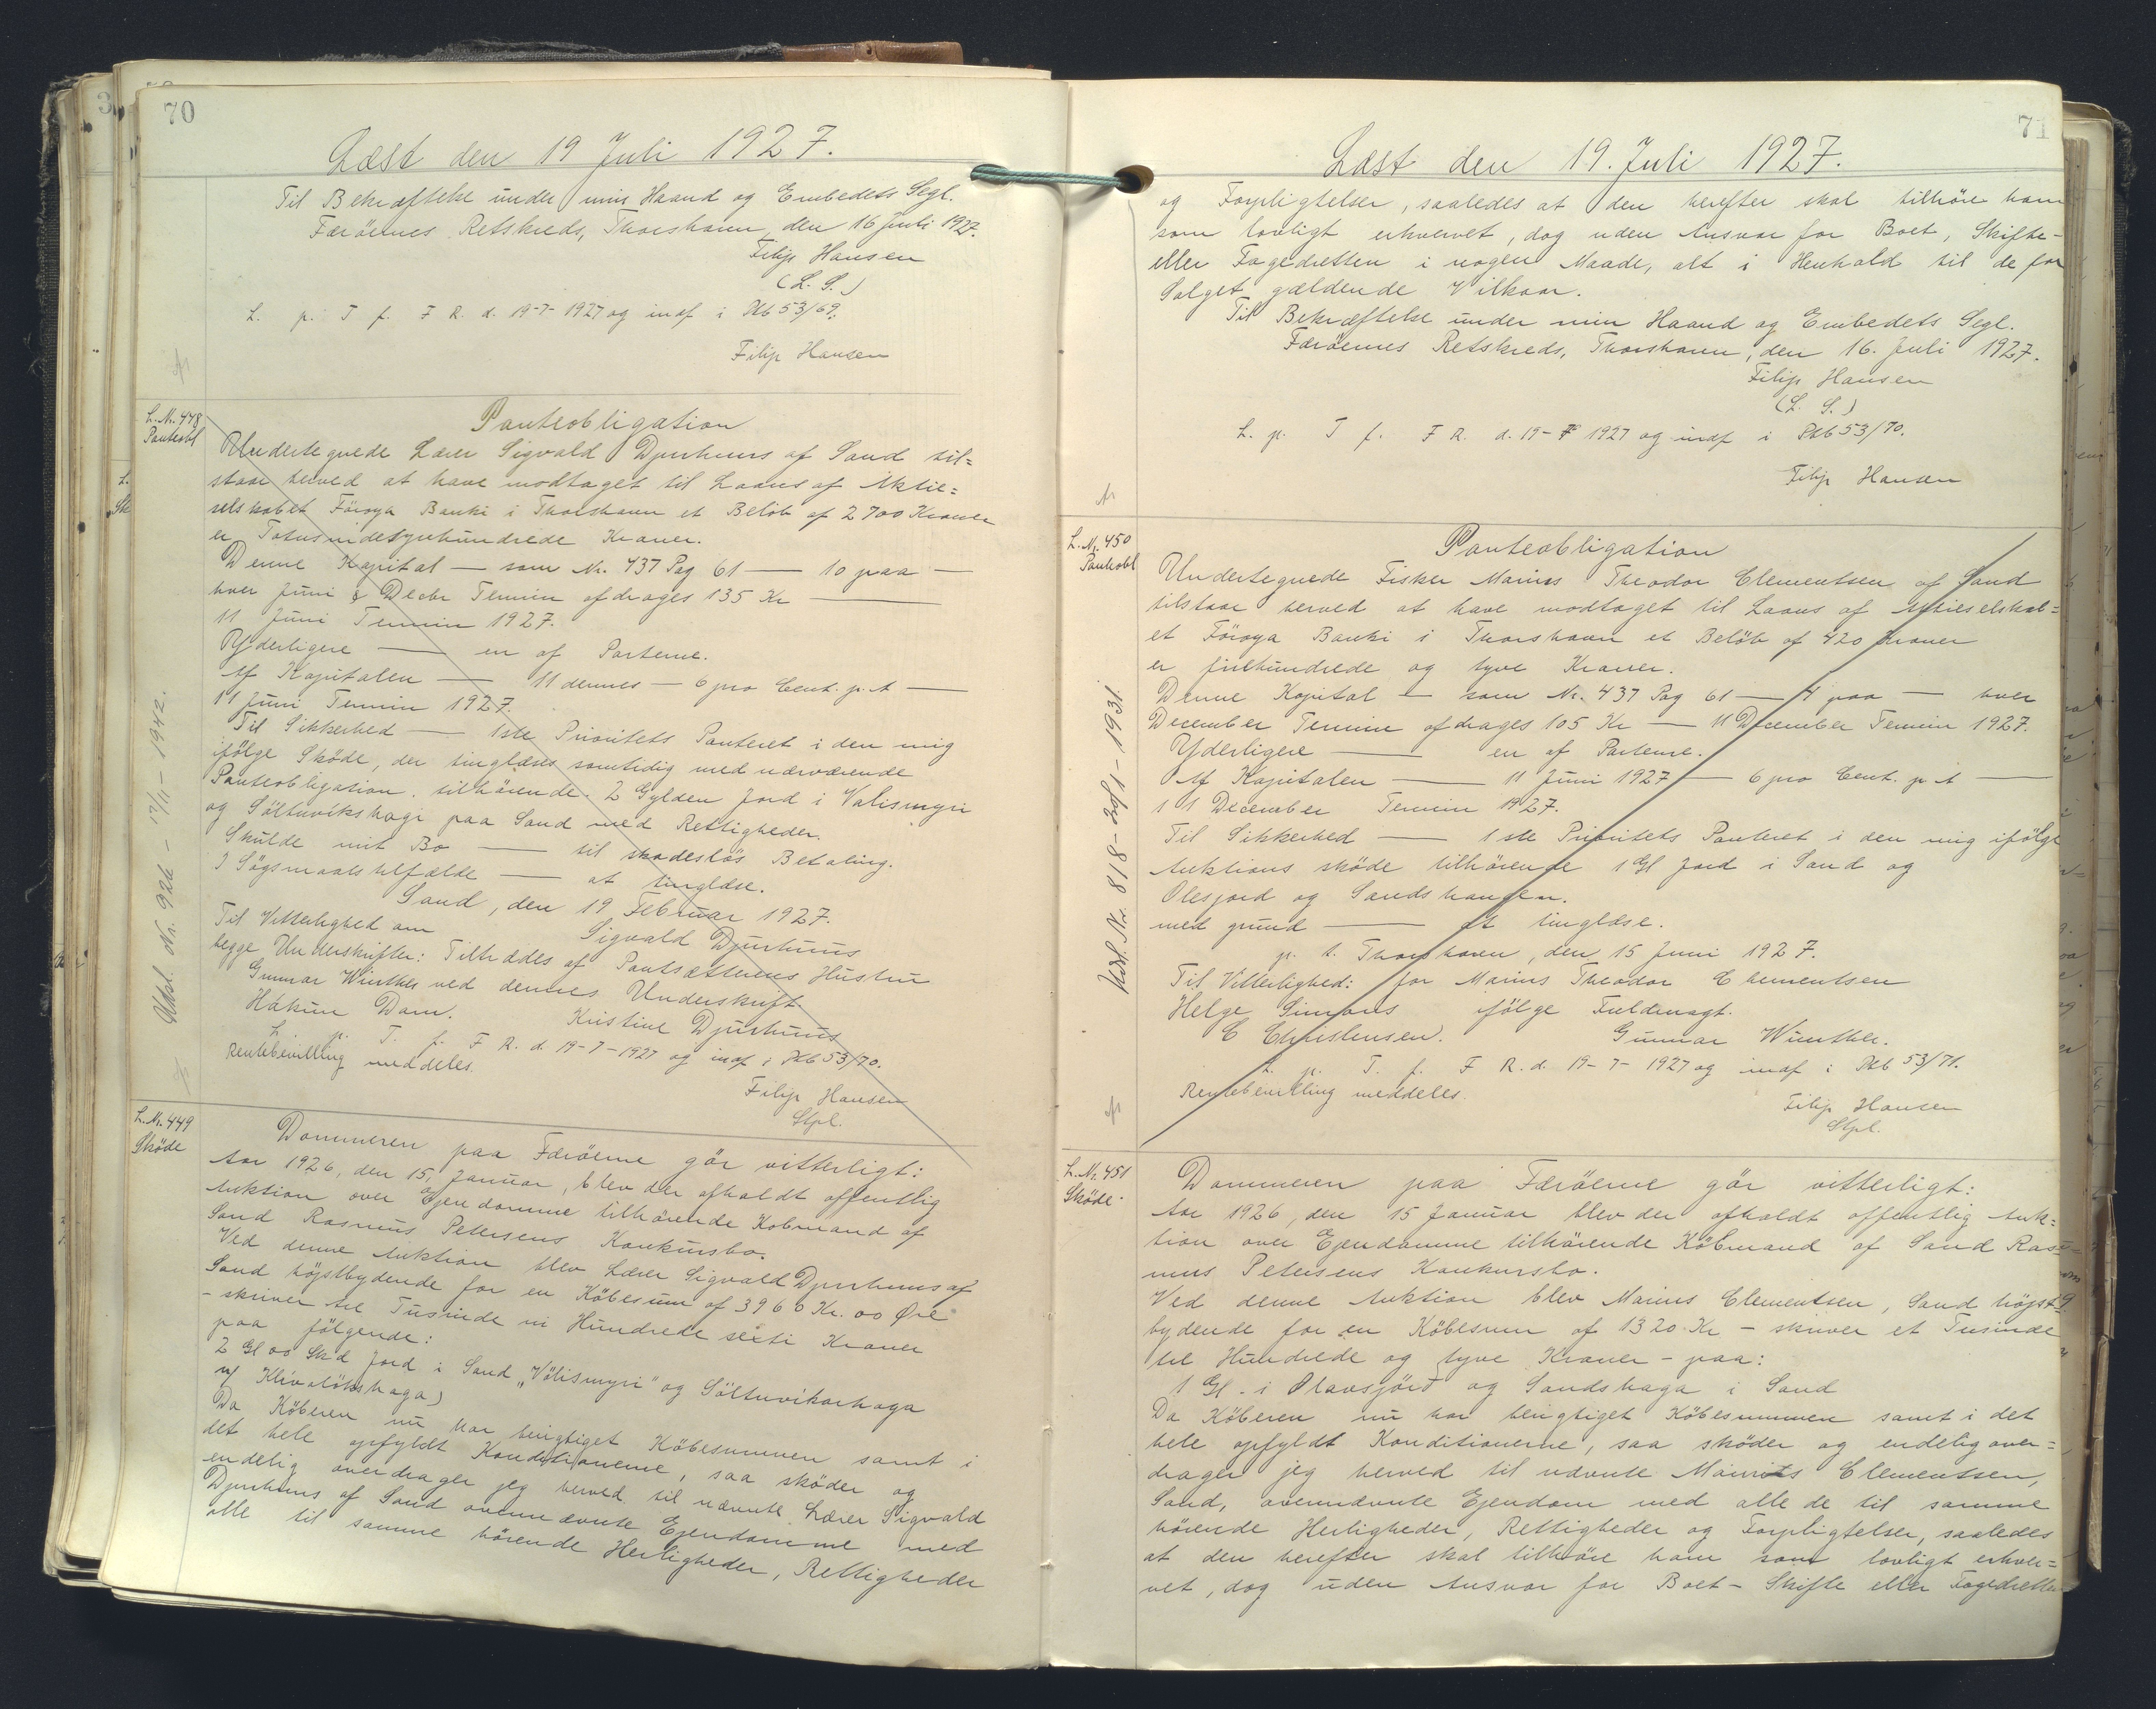 70
Læst den 19 Juli 1927.
Til Bekræftelse under min Haand og Embedets Segl.
Færöernes Retskreds, Thorshavn, den 16 Juli 1927.
Filip Hansen
(L. S.)
L. p. T f. F R. d. 19-7-1927 og indf i Pkb 53/69.
Filip Hansen
L. Nr. 448
Panteobl
Panteobligation
Undertegnede Lærer Sigvald Djurhuus af Sand til=
staar herved at have modtaget til Laans af Aktie=
selskabet Föroya Banki i Thorshavn et Belöb af 2700 Kroner
er Totusindesyvhundrede Kroner.
Denne Kapital — som Nr. 437 Pag 61 — 10 paa —
hver Juni & Decbr Termin afdrages 135 Kr —
11 Juni Termin 1927.
Yderligere — en af Parterne.
Af Kapitalen — 11 dennes — 6 pro Cent. p. A —
11 Juni Termin 1927.
Til Sikkerhed — 1ste Prioritets Panteret i den mig
ifölge Sköde, der tinglæses samtidig med nærværende
Panteobligation, tilhörende 2 Gylden Jord i Valismyri
og Söltuvikshagi paa Sand med Rettigheder.
Skulde mit Bo — til skadeslös Betaling.
I Sögsmaalstilfælde — at tinglæse.
Sand, den 19 Februar 1927.
Til Vitterlighed om Sigvald Djurhuus
begge Underskrifter: Tiltrædes af Pantsætterens Hustru
Gunnar Winther ved dennes Underskrift
Hákun Dam. Kristine Djurhuus
L. p. T. f. F R. d. 19-7-1927 og indf i Pkb 53/70.
Rentebevilling meddeles.
Filip Hansen
Stpl.
Udsl. Nr. 926 - 17/11-1942.
L. Nr. 449
Sköde
Dommeren paa Færöerne gör vitterligt:
Aar 1926, den 15, Januar, blev der afholdt offentlig
Auktion over Ejendomme tilhörende Kobmand af
Sand Rasmus Petersens Konkursbo.
Ved denne Auktion blev Lærer Sigvald Djurhuus af
Sand höjstbydende for en Köbesum af 3960 Kr. 00 Øre
- skriver tre Tusinde ni Hundrede seksti Kroner
paa fölgende:
2 Gl 00 Sk'd Jord i Sand "Völismyri" og Söltuvikarhaga
Da Köberen nu har berigtiget Köbesummen samt i
det hele opfyldt Konditionerne, saa sköder og
endelig overdrager jeg herved til nævnte Lærer Sigvald
Djurhuus af Sand ovennævnte Ejendomme med
alle til samme hörende Herligheder, Rettigheder
71
Læst den 19. Juli 1927.
og Forpligtelser, saaledes at den herefter skal tilhöre ham
som lovligt erhvervet, dog uden Ansvar for Boet, Skifte-
eller Fogedretten i nogen Maade, alt i Henhold til de for
Salget gældende Vilkaar.
Til Bekræftelse under min Haand og Embedets Segl.
Færöernes Retskreds, Thorshavn, den 16. Juli 1927.
Filip Hansen
(L. S.)
L. p. T f. F R. d. 19-7 1927 og indf i Pkb 53/70.
Filip Hansen
L. Nr. 450
Panteobl
Panteobligation
Undertegnede Fisker Marius Theodor Clementsen af Sand
tilstaar herved at have modtaget til Laans af Aktieselskab=
et Föroya Banki i Thorshavn et Belöb af 420 Kroner
er firehundrede og tyve Kroner.
Denne Kapital — som Nr. 437 Pag 61 — 4 paa — hver
December Termin afdrages 105 Kr — 11 December Termin 1927.
Yderligere — en af Parterne.
Af Kapitalen — 11 Juni 1927 — 6 pro Cent. p. A —
11 December Termin 1927.
Til Sikkerhed — 1ste Prioritets Panteret i den mig ifölge
Auktions sköde tilhörende 1 Gl Jord i Sand og
Olesjord og Sandshaugen.
med grund — at tinglæse.
p. t. Thorshavn, den 15 Juni 1927.
Til Vitterlighed: for Marius Theodor Clementsen
Helge Simons ifölge Fuldmagt.
C Christensen. Gunnar Winther.
L. p. T. f. F R. d. 19-7-1927 og indf i Pkb 53/71.
Rentebevilling meddeles.
Filip Hansen
Stpl.
L. Nr. 451
Sköde.
Dommeren paa Færöerne gör vitterligt:
Aar 1926, den 15 Januar blev der afholdt offentlig Auk=
tion over Ejendomme tilhörende Köbmand af Sand Ras=
mus Petersens Konkursbo.
Ved denne Auktion blev Marius Clementsen, Sand höjst=
bydende for en Köbesum af 1320 Kr - skriver et Tusinde
tre Hundrede og tyve Kroner - paa:
1 Gl. i Olavsjörd og Sandshaga i Sand
Da Köberen nu har berigtiget Köbesummen samt i det
hele opfyldt Konditionerne, saa sköder og endelig over=
drager jeg herved til nævnte Marius Clementsen,
Sand, ovennævnte Ejendom med alle de til samme
hörende Herligheder, Rettigheder og Forpligtelser, saaledes
at den herefter skal tilhöre ham som lovligt erhver=
vet, dog uden Ansvar for Boet- Skifte eller Fogedretten